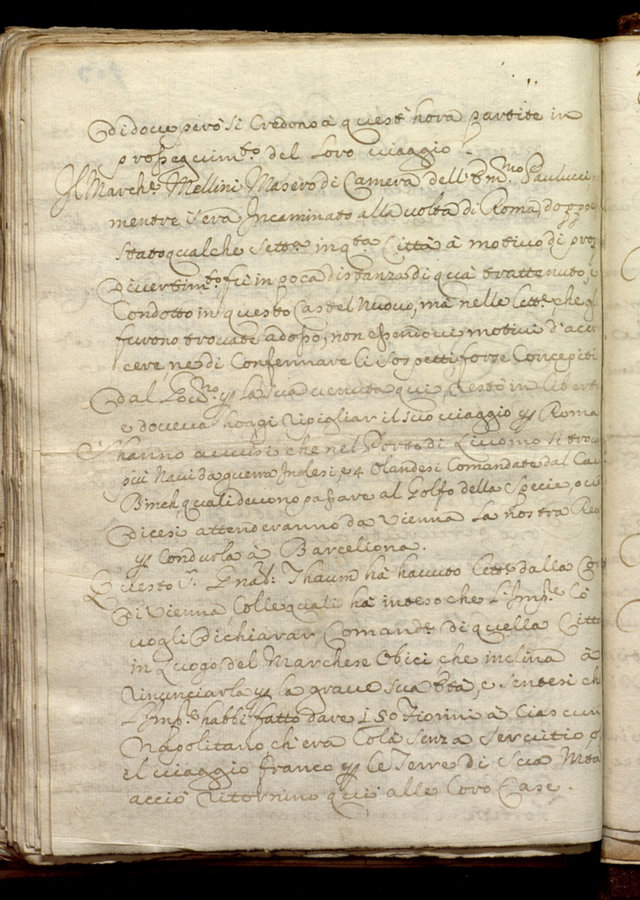 Di dove però si Credono à quest'hora partite in
proseguim.to del Loro viaggio.
Il March.e Mellini Masero di Camera dell'Em.mo Paulucci
mentre s'era Incaminato alla volta di Roma, doppo
stato qualche Sett.e in q.ta Città à motivo di pro
Divertim.to fù in poca distanza di quà trattenuto, e
Condotto in questo Castel Nuovo, mà nelle Lett.e, che gli
furono trovate adosso, non essendovi motivi d'acu
cere, ne di Confermare li Sospetti, forse Concepiti
dal Gov.no p la sua venuta qui, restò in libert
e doveva hoggi ripigliar il suo viaggio p Roma
S'hanno avvisi che nel Porto di Livorno si trov
qui Navi da guerra Inglesi, e 4 Olandesi Comandate dal Cav
Binch, quali devono passare al Golfo della Specie, o
dicesi attenderanno da Vienna La nostra Re
p Condurla à Barcellona.
Questo S.r Gnāl: Thaum hà havuto Lett.e dalla C
Di Vienna, Colle quali hà inteso che L'Imp.e Lo
vogli Dichiarar Comand.e di quella Citt
in Luogo del Marchese Obici che inclina à
rinunciarla p la grave sua Età, e sentesi ch
L'Imp.e habbi fatto dare 150 Fiorini à Ciascun
Napolitano, ch'era Colà senza servitio
il viaggio franco p Le Terre di Sua Mta
acciò ritornino qui alle Loro Case.